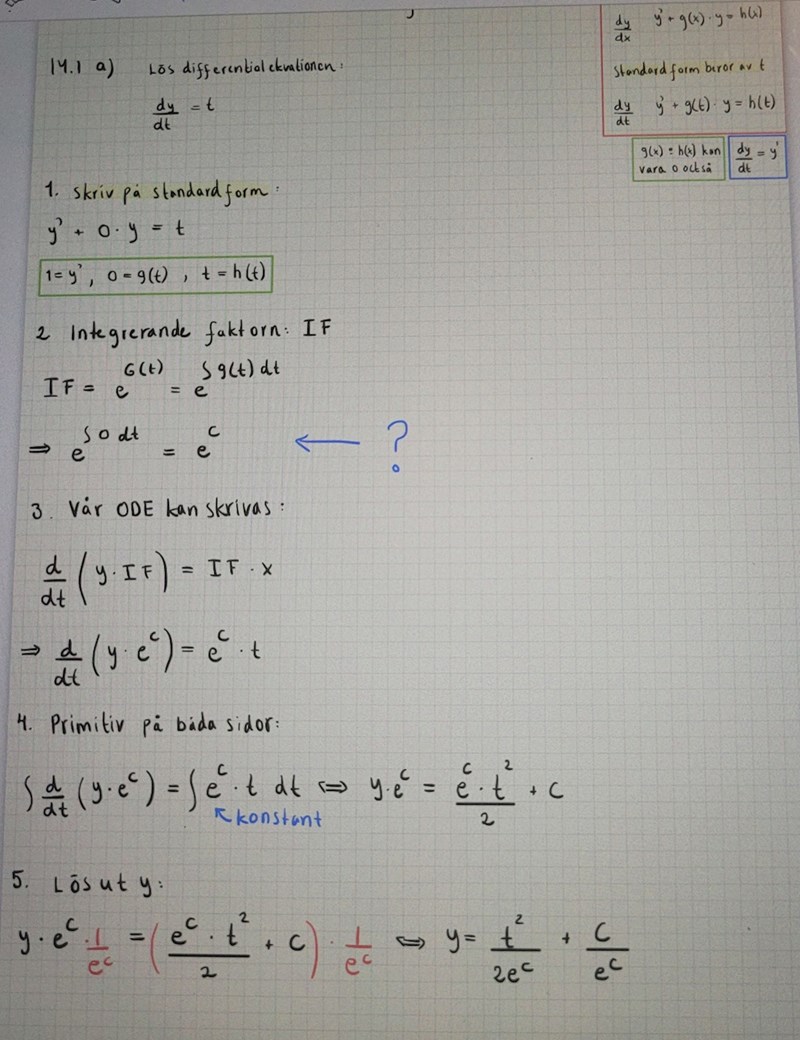 dy/dx y' + g(x) · y = h(x)
Standard form beror av t
dy/dt y' + g(t) · y = h(t)
g(x) = h(x) kan
vara 0 också
dy/dt = y'
14.1 a) Lös differentialekvationen:
dy/dt = t
1. Skriv på standardform:
y' + 0 · y = t
1 = y', 0 = g(t), t = h(t)
2 Integrerande faktorn: IF
IF = e^G(t) = e^∫g(t) dt
⇒ e^∫0 dt = e^C ← ?
3. Vår ODE kan skrivas:
d/dt (y · IF) = IF · x
⇒ d/dt (y · e^C) = e^C · t
4. Primitiv på båda sidor:
∫ d/dt (y · e^C) = ∫ e^C · t dt ⇔ y · e^C = e^C · t^2 / 2 + C
↖ konstant
5. Lös ut y:
y · e^C · 1/e^C = (e^C · t^2 / 2 + C) · 1/e^C ⇔ y = t^2 / 2e^C + C/e^C